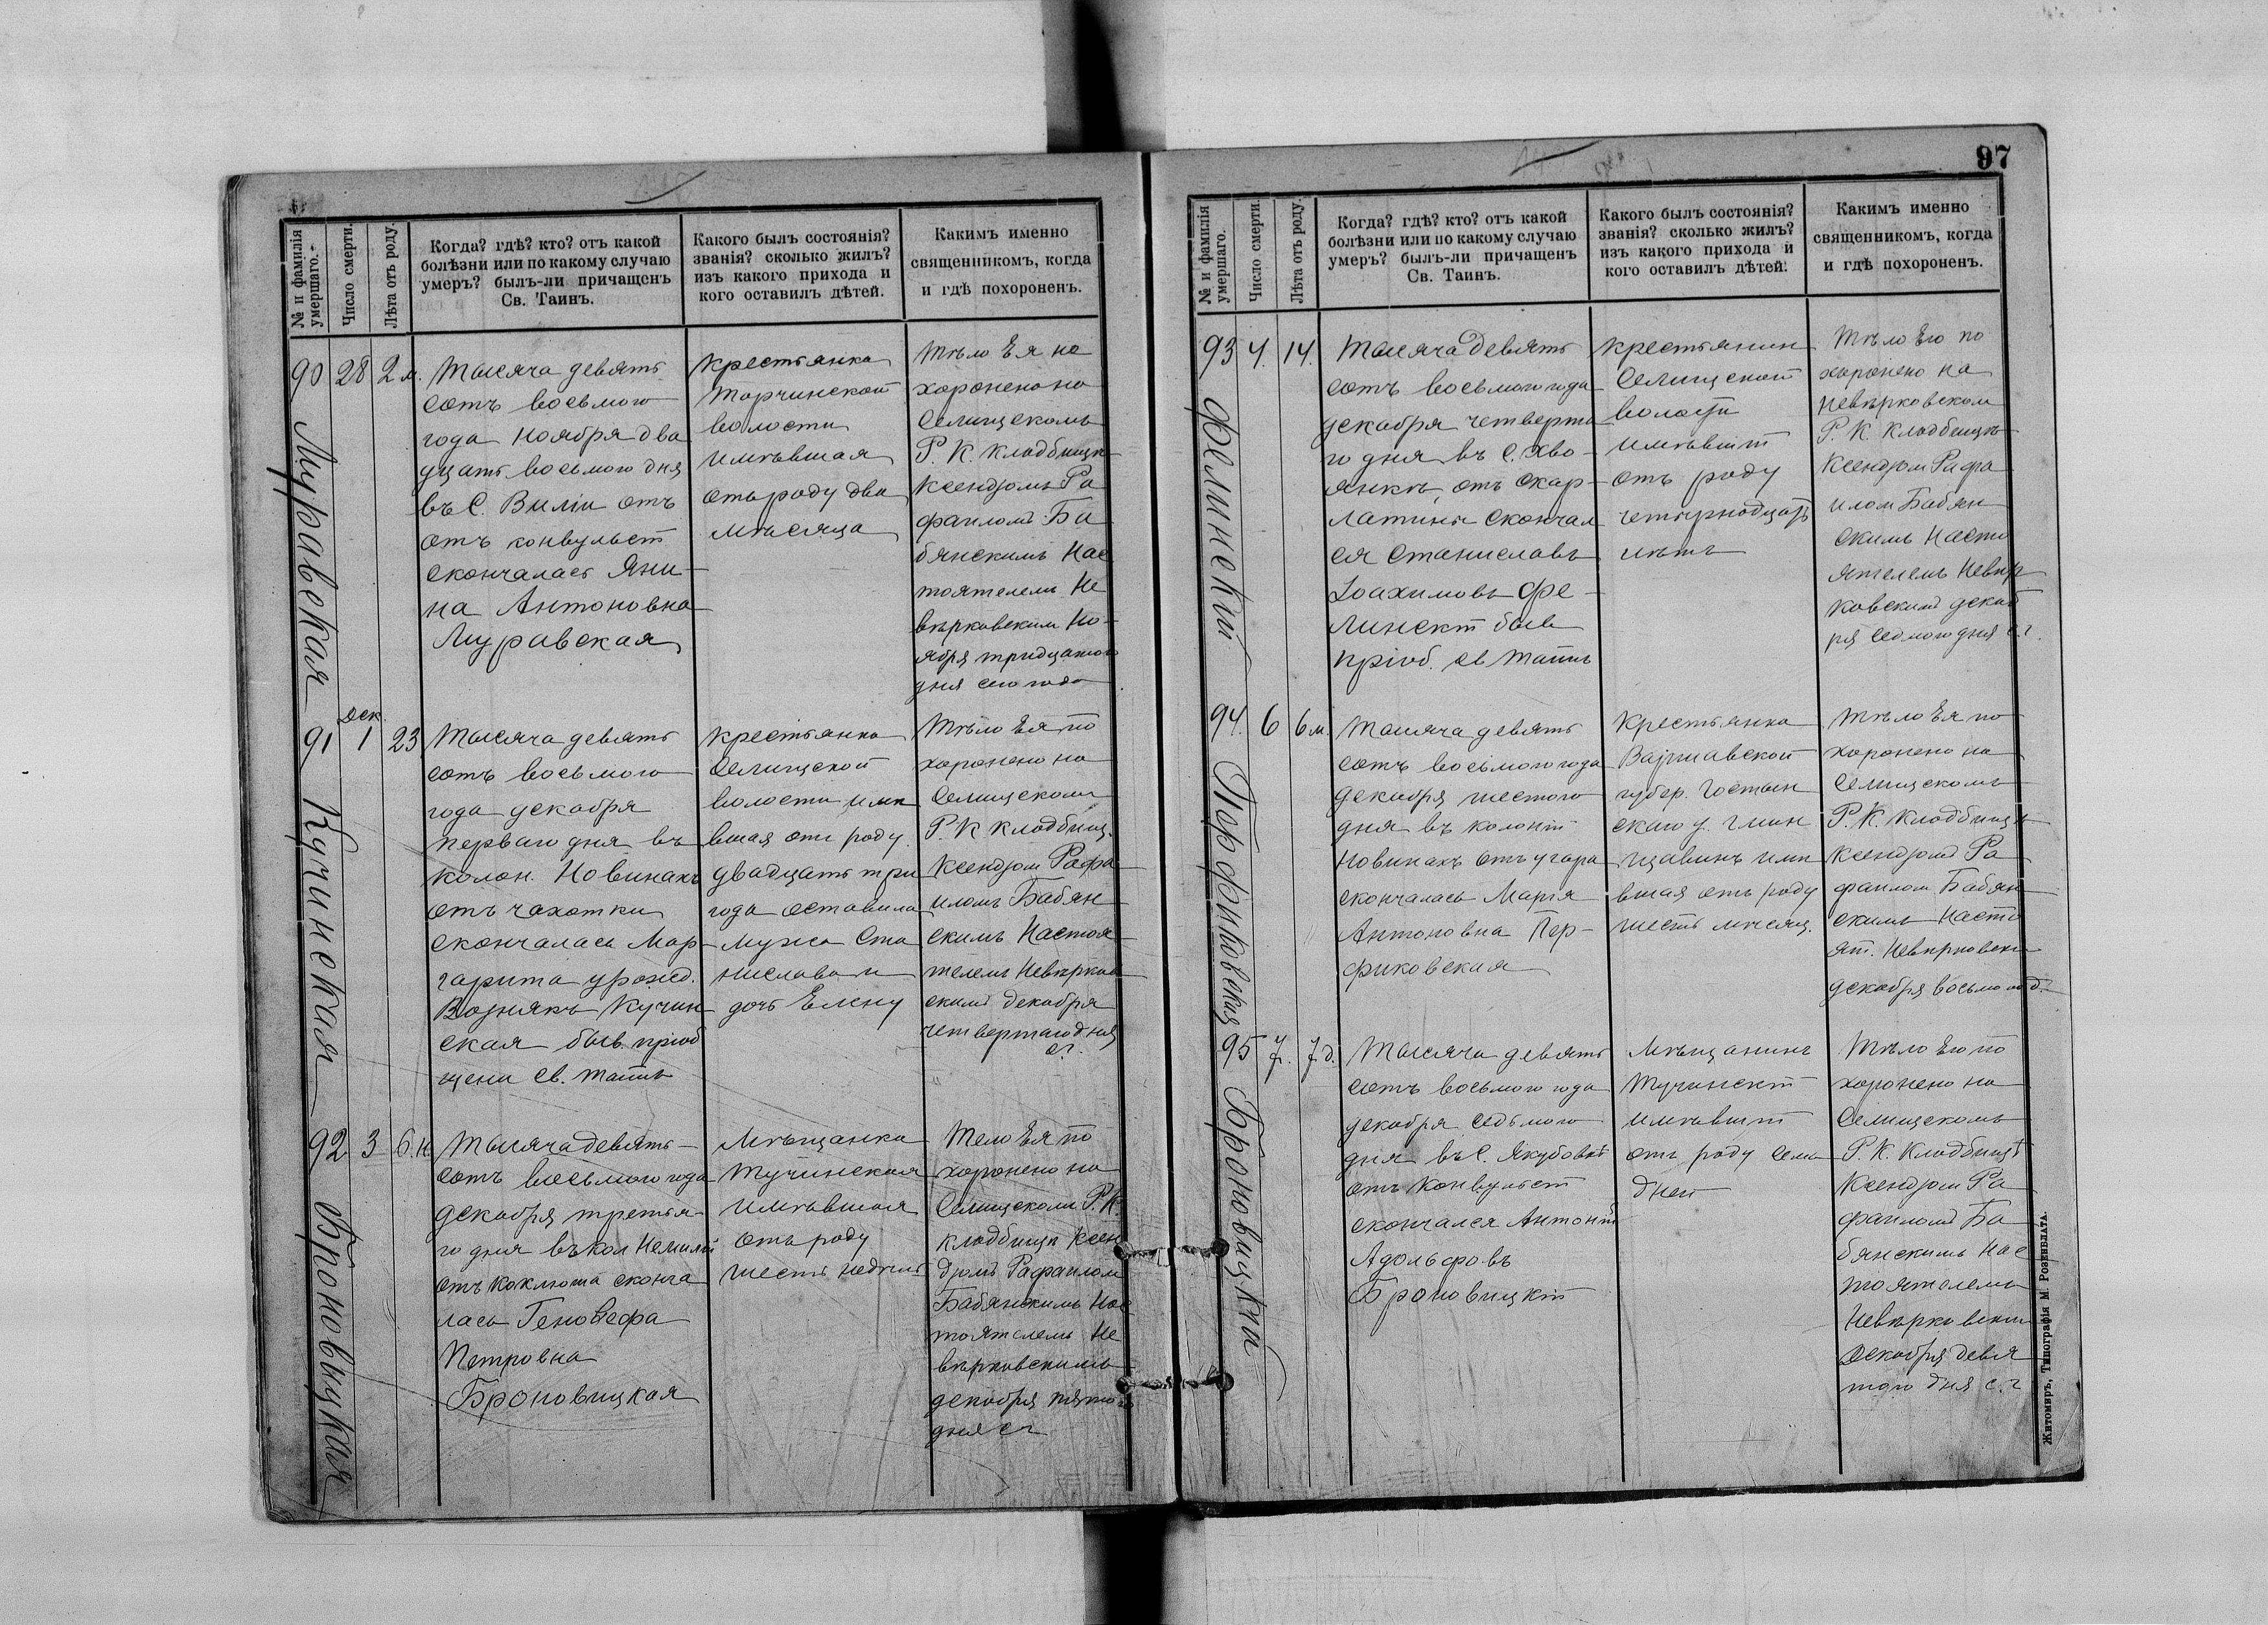 97
№ и фамилія умершаго.
Число смерти.
Лѣта отъ роду.
Когда? гдѣ? кто? отъ какой
болѣзни или по какому случаю
умеръ? былъ-ли причащенъ
Св. Таинъ.
Какого былъ состоянія?
званія? сколько жилъ?
изъ какого прихода и
кого оставилъ дѣтей.
Какимъ именно
священникомъ, когда
и гдѣ похороненъ.
90
28
2 м.
Муравская
Тысяча девять
сотъ восьмого
года Ноября два
дцать восьмого дня
въ С. Виліи отъ
отъ конвульсій
скончалась Яни-
на Антоновна
Муравская
крестьянка
Торчинской
волости
имѣвшая
отъ роду два
мѣсяца
Тѣло Ея по
хоронено на
Селищскомъ
Р. К. Кладбищѣ
Ксендзомъ Ра
фаиломъ Ба
бянскимъ Нас
тоятелемъ Не
вѣрковскимъ Но-
ября тридцатого
дня сего года
91
Дек.
1
23
Кучинская
Тысяча девять
сотъ восьмого
года декабря
перваго дня въ
колон. Новинахъ
отъ чахотки
скончалась Мар-
гарита урожд.
Вознякъ Кучин
ская быв. пріоб
щена Св. Таинъ
крестьянка
Селищской
волости имѣ
вшая отъ роду
двадцать три
года оставила
мужа Ста
нислава и
дочь Елену
Тѣло Ея по
хоронено на
Селищскомъ
Р. К. Кладбищ.
Ксендзом Рафа
иломъ Бабян
скимъ Настоя
телемъ Невѣрков
скимъ декабря
четвертаго дня
с.г.
92
3
6. н.
Броновицкая
Тысяча девять-
сотъ восьмого года
декабря третья-
го дня въ кол Немилій
отъ коклюша сконча
лась Геновефа
Петровна
Броновицкая
Мѣщанка
Тучинская
имѣвшая
отъ роду
шесть недѣль
Тело Ея по
хоронено на
Селищском Р. К.
кладбищѣ Ксен
дзомъ Рафаилом
Бабянскимъ Нас
тоятелемъ Не
вѣрковскимъ
декабря пятого
дня с г
№ и фамилія умершаго.
Число смерти.
Лѣта отъ роду.
Когда? гдѣ? кто? отъ какой
болѣзни или по какому случаю
умеръ? былъ-ли причащенъ
Св. Таинъ.
Какого былъ состоянія?
званія? сколько жилъ?
изъ какого прихода и
кого оставилъ дѣтей.
Какимъ именно
священникомъ, когда
и гдѣ похороненъ.
93
4.
14.
Фелинскій
Тысяча девять
сотъ восьмого года
декабря четверта
го дня въ С. Хво-
янкѣ, отъ скар-
латины скончал
ся Станиславъ
Іоахимовъ Фе-
линскій быв
пріоб. св Таинъ
крестьянин
Селищской
волости
имѣвшій
отъ роду
четырнадцать
лѣтъ
Тѣло Его по
хоронено на
Невѣрковском
Р. К. Кладбищѣ
Ксендзом Рафа
илом Бабян
скимъ Насто
ятелемъ Невѣр
ковскимъ декаб
ря седмого дня с.г.
94.
6
6 м.
Перфиковская
Тысяча девять
сотъ восьмого года
декабря шестого
дня въ колоніи
Новинахъ отъ угара
скончалась Марія
Антоновна Пер-
фиковская
Крестьянка
Варшавской
губер. Гостын
скаго у. гмин
имѣ
вшая отъ роду
шесть мѣсяц.
Тѣло Ея по
хоронено на
Селищскомъ
Р. К. Кладбищѣ
Ксендзомъ Ра
фаилом Бабян
скимъ Насто
ят. Невѣрковски
декабря восьмого д.
95
7.
7 д.
Броновицкій
Тысяча девять
сотъ восьмого года
декабря седьмого
дня въ С. Якубовкѣ
отъ Конвульсій
скончался Антоній
Адольфовъ
Броновицкій
Мѣщанинъ
Тучинскій
имѣвшій
отъ роду семь
дней
Тѣло Его по
хоронено на
Селищскомъ
Р. К. Кладбищѣ
Ксендзом Ра
фаиломъ Ба
бянскимъ Нас
тоятелемъ
Невѣрковским
Декабря девя
того дня с. г
Житомиръ, Типографія М. Розенблата.